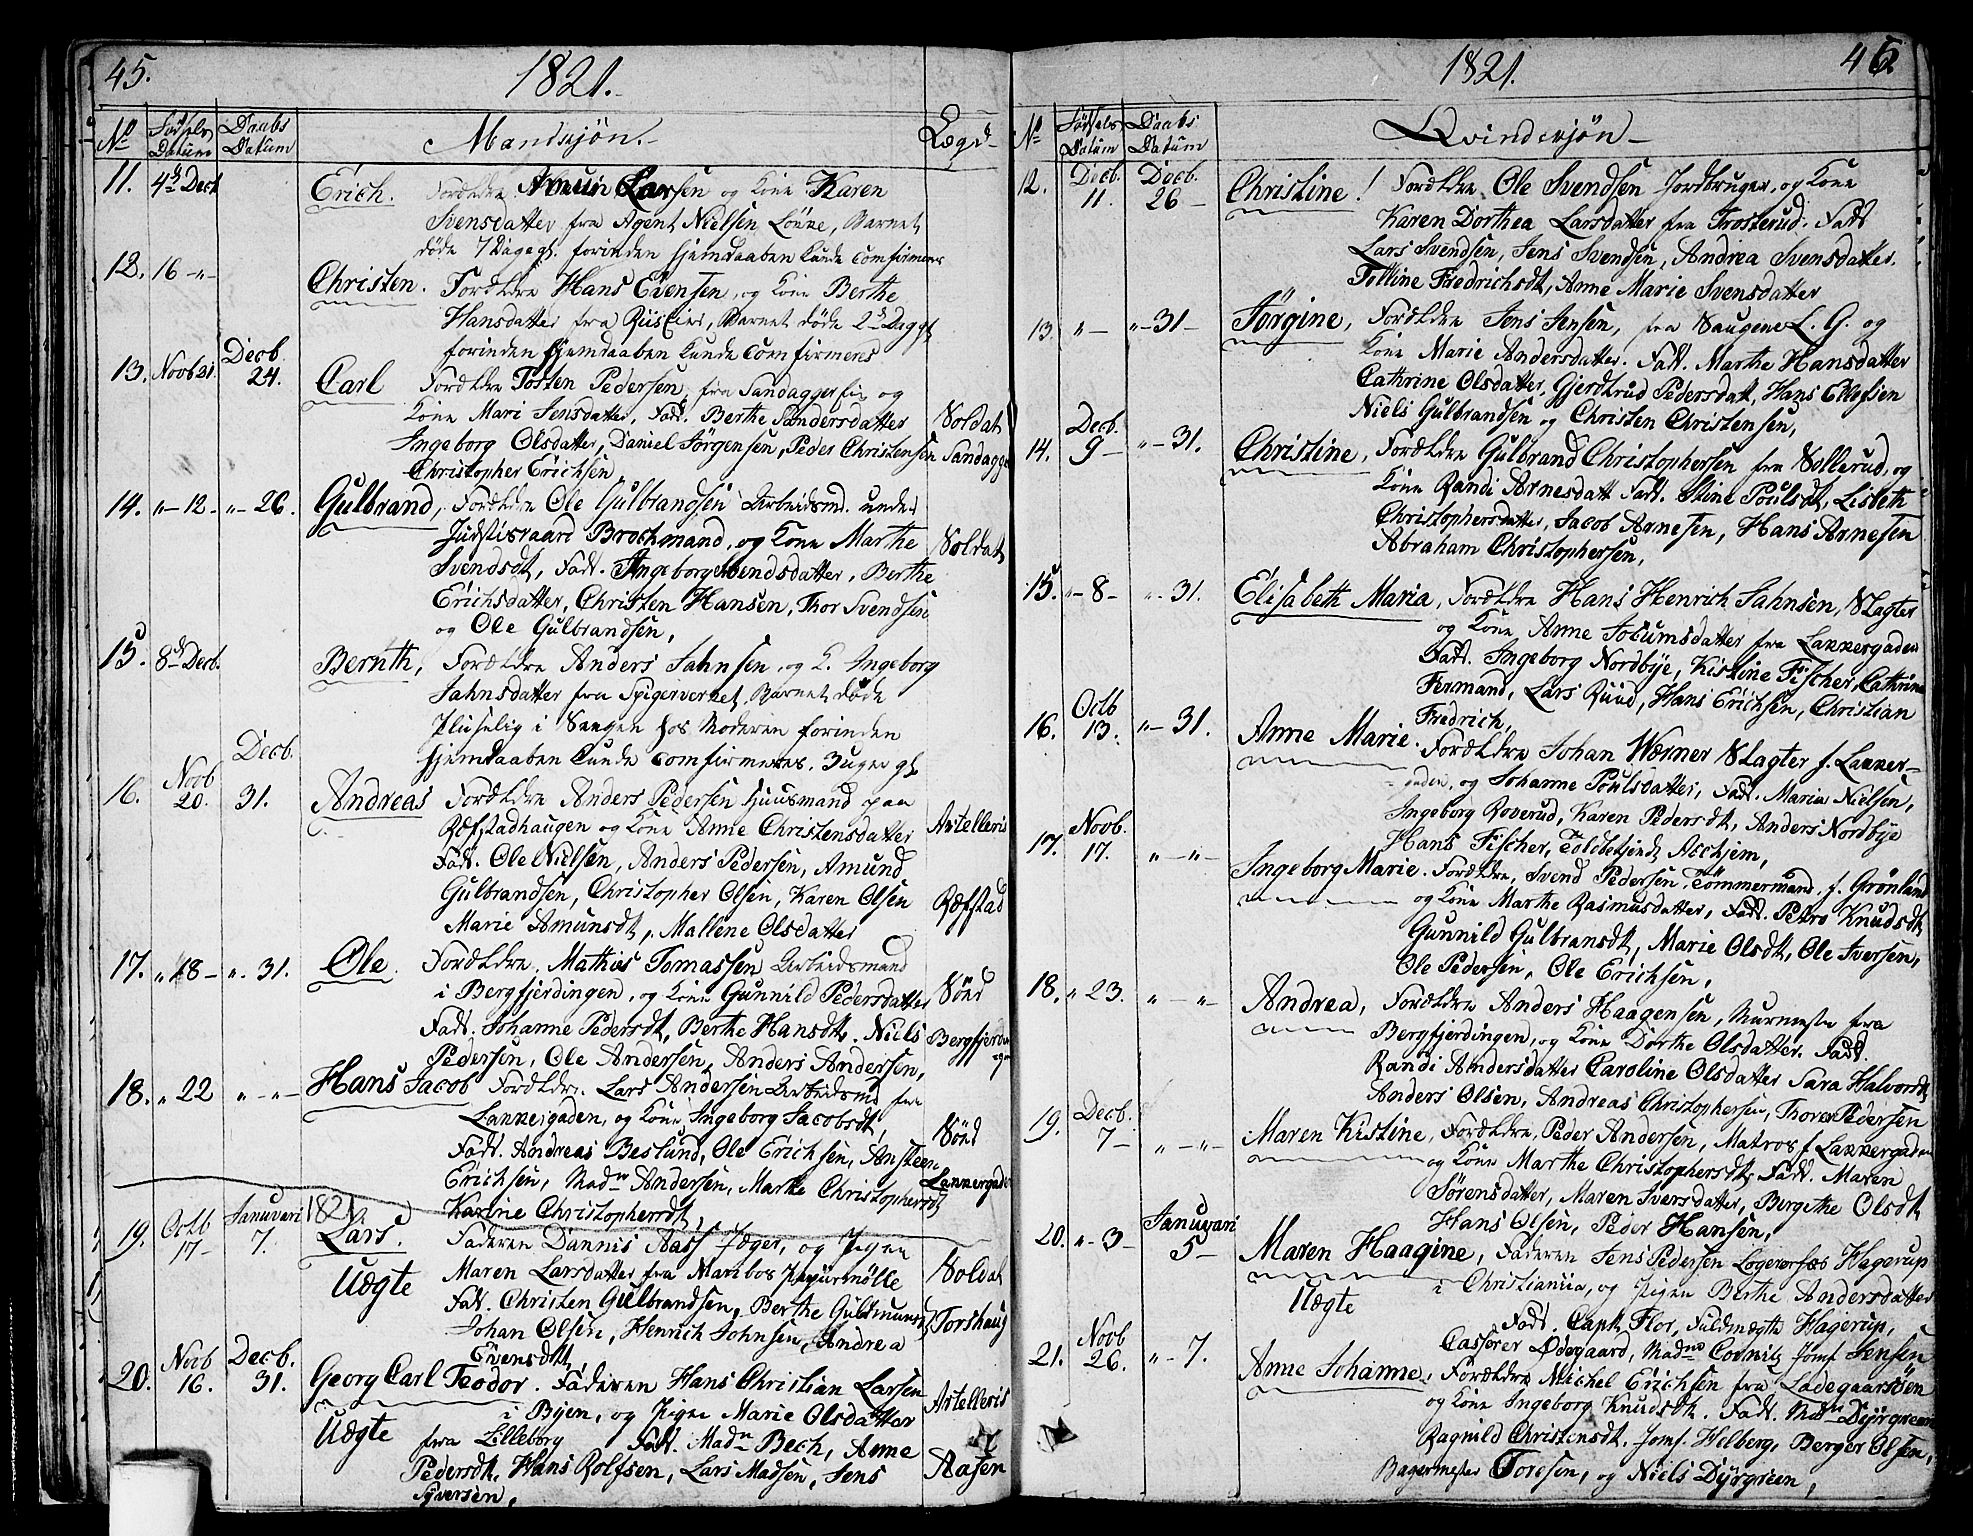 45.
1821.
No
Fødsels Datum
Daabs Datum
Mandkjøn.
Lægd
11. 4de Decb
Erich. Forældre Amun Larsen og Kone Karen
Svensdatter fra Agent Nielsen Løkke, Barnet
døde 7 Dage gl. forinden Hjemdaaben kunde comfirmeres
12. 16 -"-
Christen. Forældre Hans Evensen, og Kone Berthe
Hansdatter fra Barnet døde 2de Dag gl.
forinden Hjemdaaben kunde comfirmeres
13. Novb 21. Decb. 24.
Carl Forældre Tosten Pedersen, fra Sandaggerfin og
Kone Mari Jensdatter, Fad. Berthe Sandersdatter
Ingeborg Olsdatter, Daniel Jørgensen, Peder Christensen
Christopher Erichsen
Soldat
Sandagge
14. "-12- "-26.
Gulbrand, Forældre Ole Gulbrandsen Arbeidsmd. under
Justisraad Brochmand, og Kone Marthe
Svendsdt, Fad. Ingeborg Svendsdatter, Berthe
Erichsdatter, Christen Hansen, Thor Svendsen
og Ole Gulbrandsen,
Soldat
15. 8de Decb.
Bernth, Forældre Anders Jahnsen, og K. Ingeborg
Jahnsdatter fra Spigerverket, Barnet døde
Pluselig i Sengen hos Moderen forinden
Hjemdaaben kunde comfirmeres. 3 uger gl.
16. Novb 20. Decb. 31.
Andreas Forældre Anders Pedersen Huusmand paa
Refstadhaugen og Kone Anne Christensdatter
Fad. Ole Nielsen, Anders Pedersen, Amund
Gulbrandsen, Christopher Olsen, Karen Olsen
Marie Amunsdt, Mallene Olsdatter
Artelleris
Refstad
17. "18- ". 31.
Ole. Forældre. Mathies Tomassen Arbeidsmand
i Bergfjerdingen, og Kone Gunnild Pedersdatter
Fad. Johanne Pedersdt, Berthe Hansdt. Niels
Pedersen, Ole Andersen, Anders Andersen,
Sønd
Bergfjerdin
18. " 22 "-"-
Hans Jacob Forældre. Lars Andersen Arbeidsmd fra
Lakkergaden, og Kone Ingeborg Jacobsdt,
Fad. Andreas Beslund, Ole Erichsen, Ansteen
Erichsen, Madm Andersen, Marthe Christophersdt
Karine Christophersdt,
Sønd
Lakkergaden
1821
19. Octb 17- Januvari 7.
Lars. Faderen Dannis Aass Jæger, og Pigen
Uægte Maren Larsdatter fra Maribos Papiirmølle
Fad. Christen Gulbrandsen, Berthe Guldmunsd
Johan Olsen, Henrich Johnsen, Andrea
Evensdt
Soldat
Torshaug
20. Novb 16. Decb. 31.
Georg Carl Teodor. Faderen Hans Christian Larsen
Uægte i Byen, og Pigen Marie Olsdatter
fra Lilleborg Fad. Madm Bech, Anne
Pedersdt, Hans Rolfsen, Lars Madsen, Jens
Syversen,
Artelleris
Aasen
1821.
46
No
Fødsels Datum
Daabs Datum
Qvindekjøn
12. Decb. 11. Decb. 26-
Christine! Forældre, Ole Svendsen Jordbruger, og Kone
Karen Dorthea Larsdatter fra Trosterud. Fad.
Lars Svendsen, Jens Svendsen, Andrea Svensdatter
Tolline Fredrichsdt, Anne Marie Svensdatter
13. "- "-31-
Jørgine, Forældre Jens Jensen, fra Saugene L. G. og
Kone Marie Andersdatter. Fad. Marthe Hansdatter
Cathrine Olsdatter, Gjerdtrud Pedersdatt, Hans Ellefsen
Niels Gulbrandsen og Christen Christensen,
14. Decb. 9- "-31.
Christine, Forældre Gulbrand Christophersen fra Sollerud, og
Kone Randi Arnesdatt Fad. Stine Poulsdt, Lisbeth
Christophersdatter, Jacob Arnesen, Hans Arnesen
Abraham Christophersen,
15. "-8- "-31.
Elisabeth Maria, Forældre Hans Henrich Jahnsen, Slagter
og Kone Anne Jocumsdatter fra Lakkergaden
Fad. Ingeborg Nordbye, Kistine Fischer, Cathrine
Fermand, Lars Ruud, Hans Erichsen, Christian
Fredrich,
16. Octb 13. "-31.
Anne Marie. Forældre Johan Werner Slagter f. Lakker-
gaden, og Johanne Poulsdatter, Fad. Maria Nielsen,
Ingeborg Roverud, Karen Pedersdt, Anders Nordbye
Hans Fischer, Aschjem,
17. Novb. 17. "-"-
Ingeborg Marie. Forældre, Svend Pedersen, Tømmermand, f. Grønland
og Kone Marthe Rasmusdatter, Fad. Petro Knudsdt
Gunnild Gulbransdt, Marie Olsdt, Ole Iversen,
Ole Pedersen, Ole Erichsen,
18. " 23. "-"-
Andrea, Forældre Anders Haagensen, Murmester fra
Bergfjerdingen, og Kone Dorthe Olsdatter. Fad.
Randi Andersdatter Caroline Olsdatter Sara Halvordt
Anders Olsen, Andreas Christophersen, Thorer Pedersen
19. Decb. 7- "-"-
Maren Kistine, Forældre, Peder Andersen, Matros f Lakkergaden
og Kone Marthe Christophersdt, Fad. Maren
Sørensdatter, Maren Iversdatter, Bergithe Olsdt
Hans Olsen, Peder Hansen,
20. "-3- Januvari 5-
Maren Haagine, Faderen Jens Pedersen Logerer hos Hagerup
Uægte i Christiania, og Pigen Berthe Andersdatter
Fad. Capt. Flor, Fuldmægte Hagerup,
Casserer Ødegaard, Madme Cornitz Jomf Jensen
21. Novb 26. "-7.
Anne Johanne, Forældre Michel Erichsen fra Ladegaarsøen
og Kone Ingeborg Knudsdt. Fad. Madm Dyrgreen
Ragnild Christensdt, Jomf. Helberg, Berger Olsen,
Bagermester Toresen, og Niels Dyrgreen,